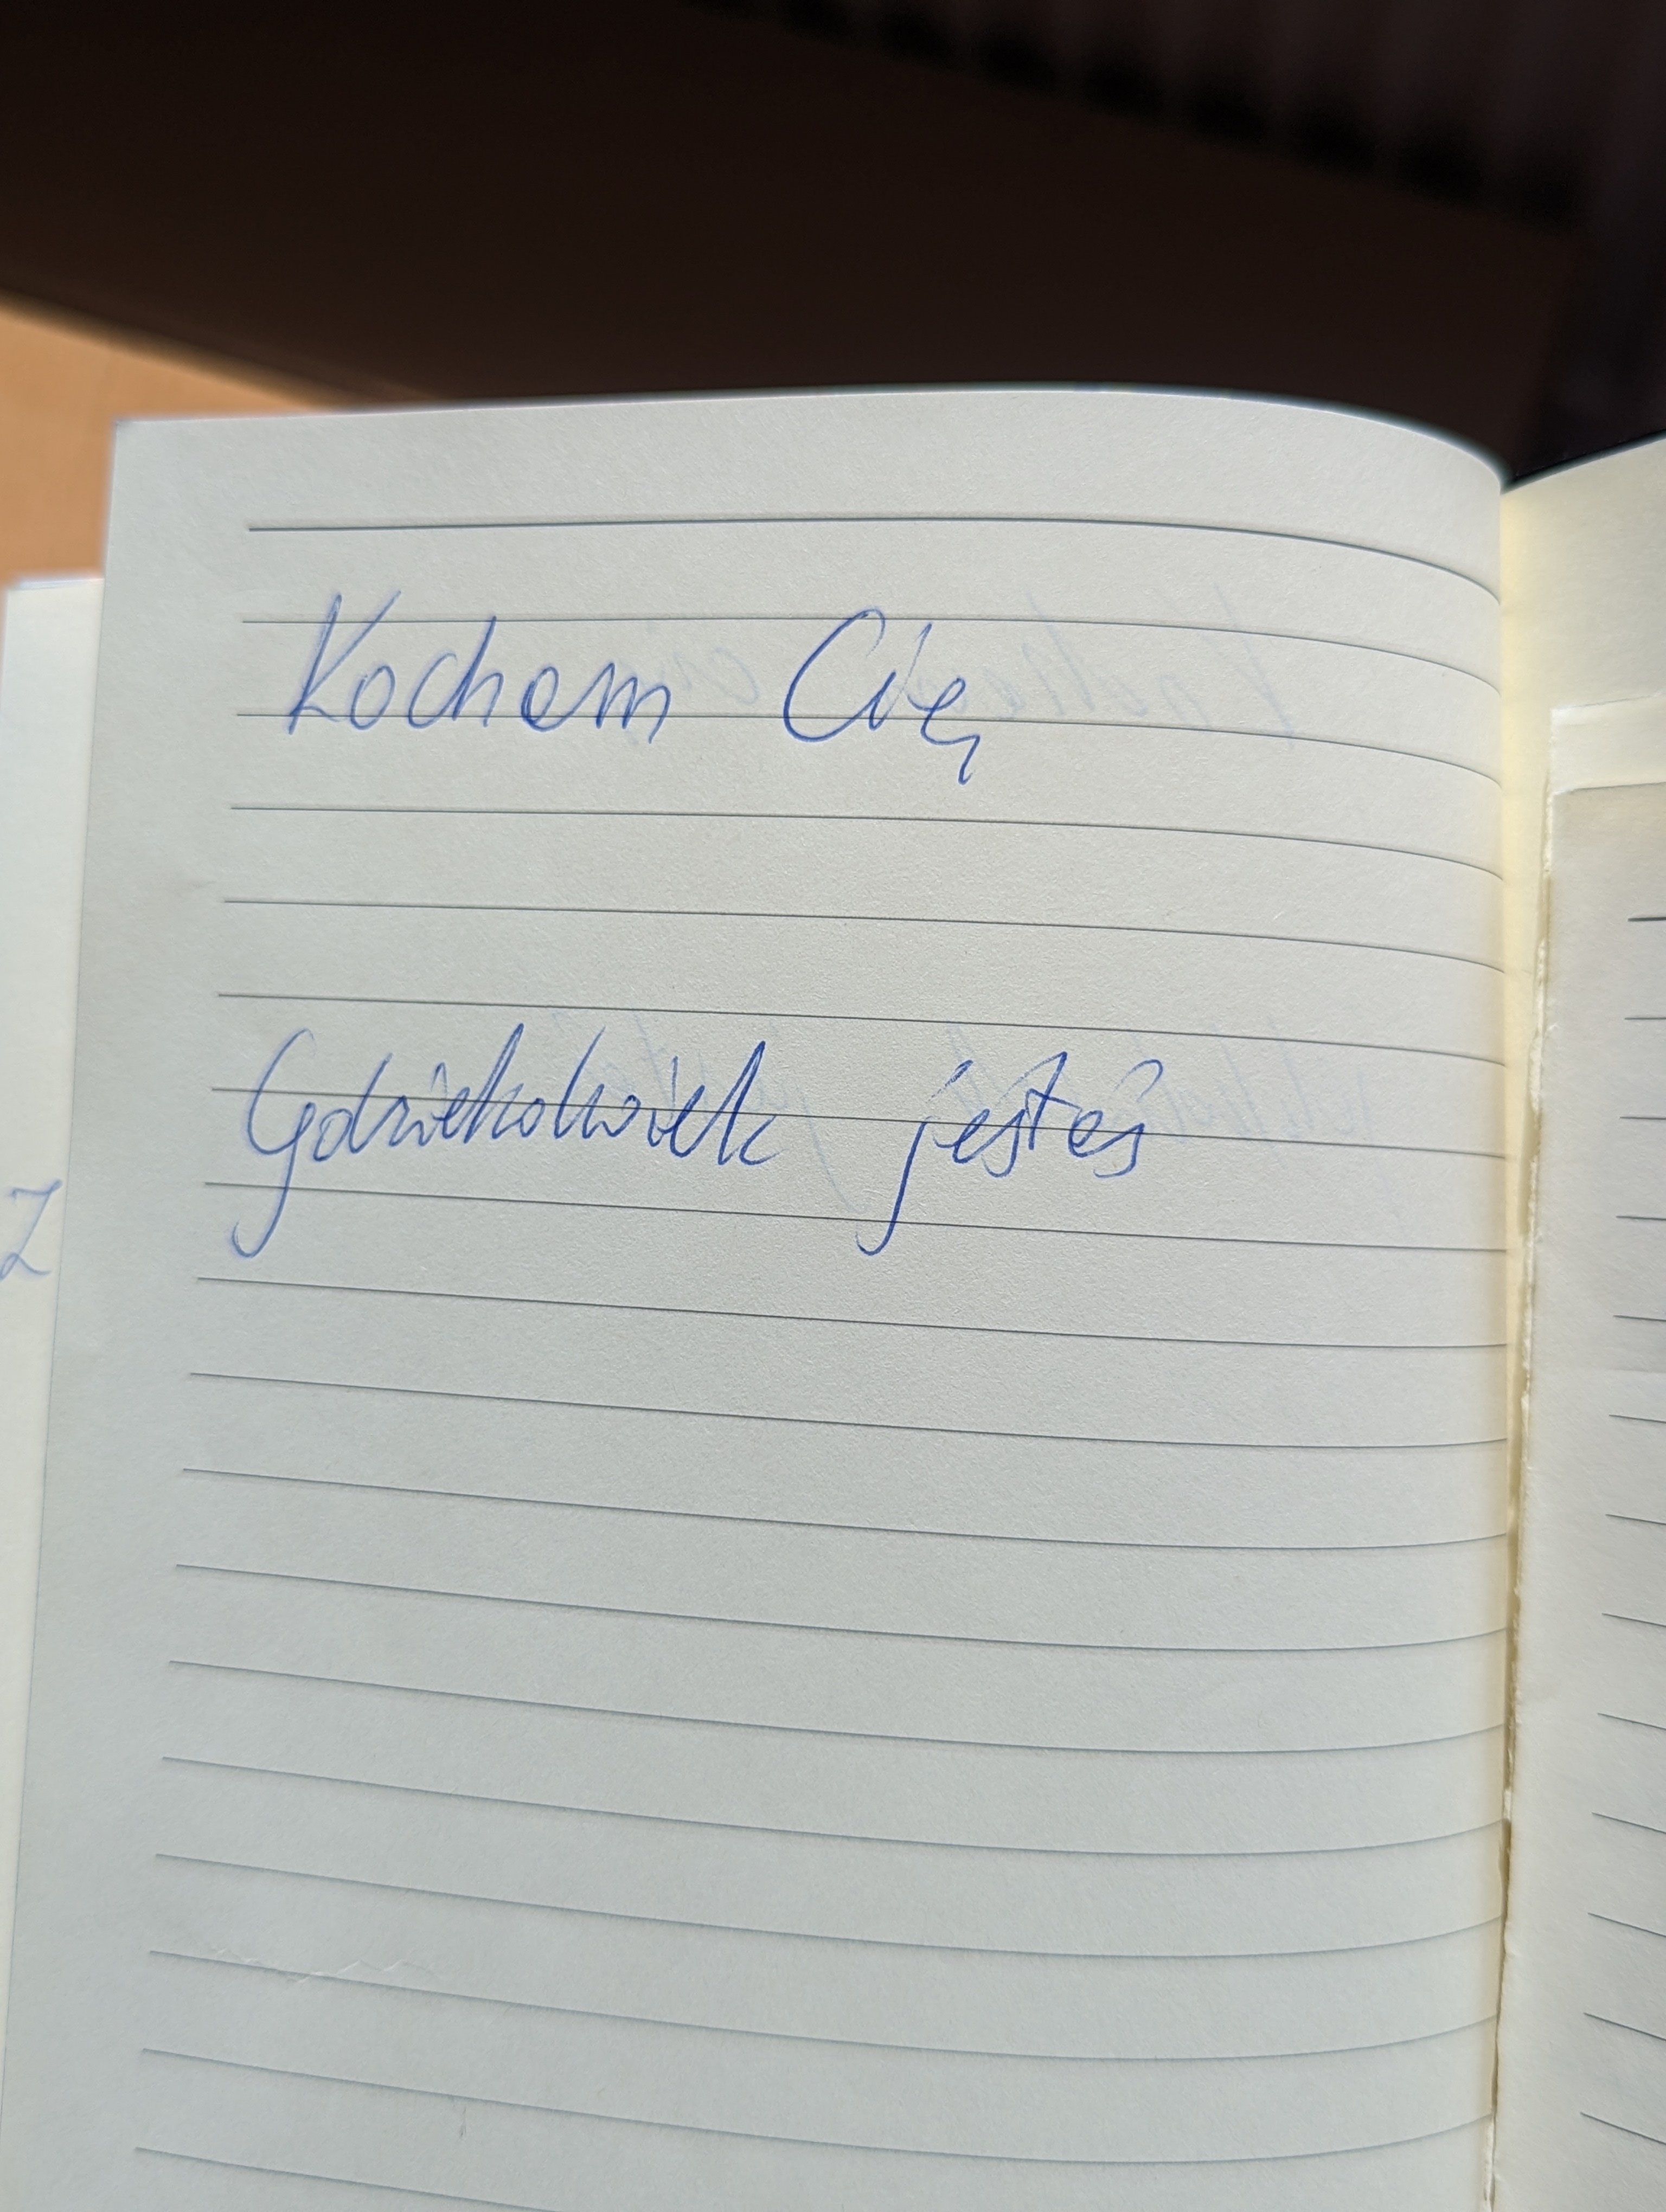 Kocham Cię
Gdziekolwiek jesteś
Z